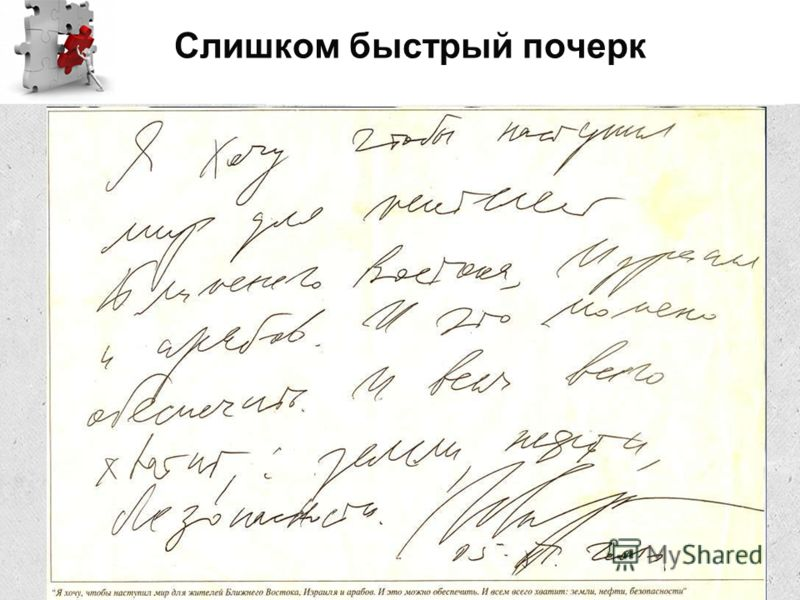 Слишком быстрый почерк
Я хочу чтобы наступил
мир для жителей
Ближнего Востока, Израиля
и арабов. И это можно
обеспечить. И всем всего
хватит, : земли, нефти,
безопасности.
05.
MyShared
"Я хочу, чтобы наступил мир для жителей Ближнего Востока, Израиля и арабов. И это можно обеспечить. И всем всего хватит: земли, нефти, безопасности"